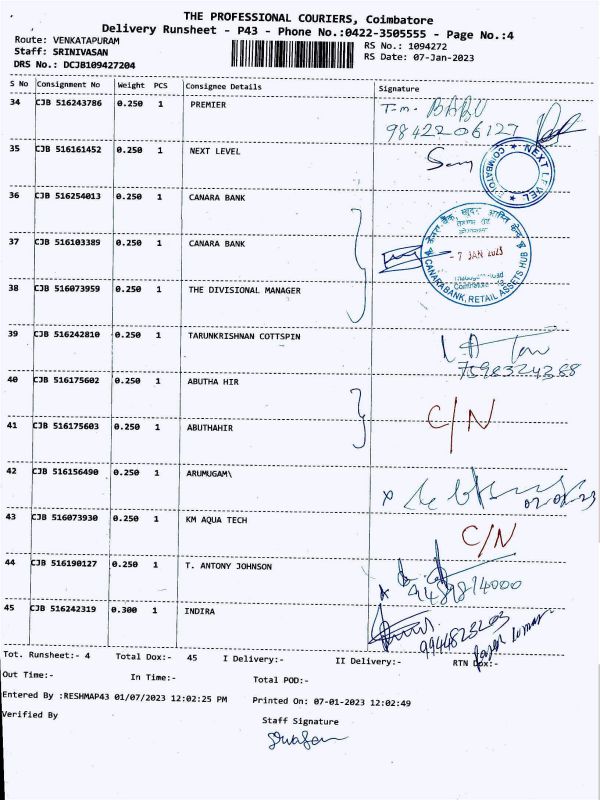 THE PROFESSIONAL COURIERS, Coimbatore
Delivery Runsheet - P43 - Phone No.:0422-3505555 - Page No.:4
Route: VENKATAPURAM
Staff: SRINIVASAN
DRS No.: DCJB109427204
RS No.: 1094272
RS Date: 07-Jan-2023
S No Consignment No Weight PCS Consignee Details Signature
34 CJB 516243786 0.250 1 PREMIER
T.m. BABU
9842206127
35 CJB 516161452 0.250 1 NEXT LEVEL
NEXT LEVEL
36 CJB 516254013 0.250 1 CANARA BANK
37 CJB 516103389 0.250 1 CANARA BANK
- 7 JAN 2023
CANARA BANK, RETAIL ASSETS HUB
38 CJB 516073959 0.250 1 THE DIVISIONAL MANAGER
39 CJB 516242810 0.250 1 TARUNKRISHNAN COTTSPIN
40 CJB 516175602 0.250 1 ABUTHA HIR
C/N
41 CJB 516175603 0.250 1 ABUTHAHIR
42 CJB 516156490 0.250 1 ARUMUGAM\
43 CJB 516073930 0.250 1 KM AQUA TECH
C/N
44 CJB 516190127 0.250 1 T. ANTONY JOHNSON
45 CJB 516242319 0.300 1 INDIRA
Tot. Runsheet:- 4 Total Dox:- 45 I Delivery:- II Delivery:- RTN Dox:-
Out Time:- In Time:- Total POD:-
Entered By :RESHMAP43 01/07/2023 12:02:25 PM Printed On: 07-01-2023 12:02:49
Verified By Staff Signature